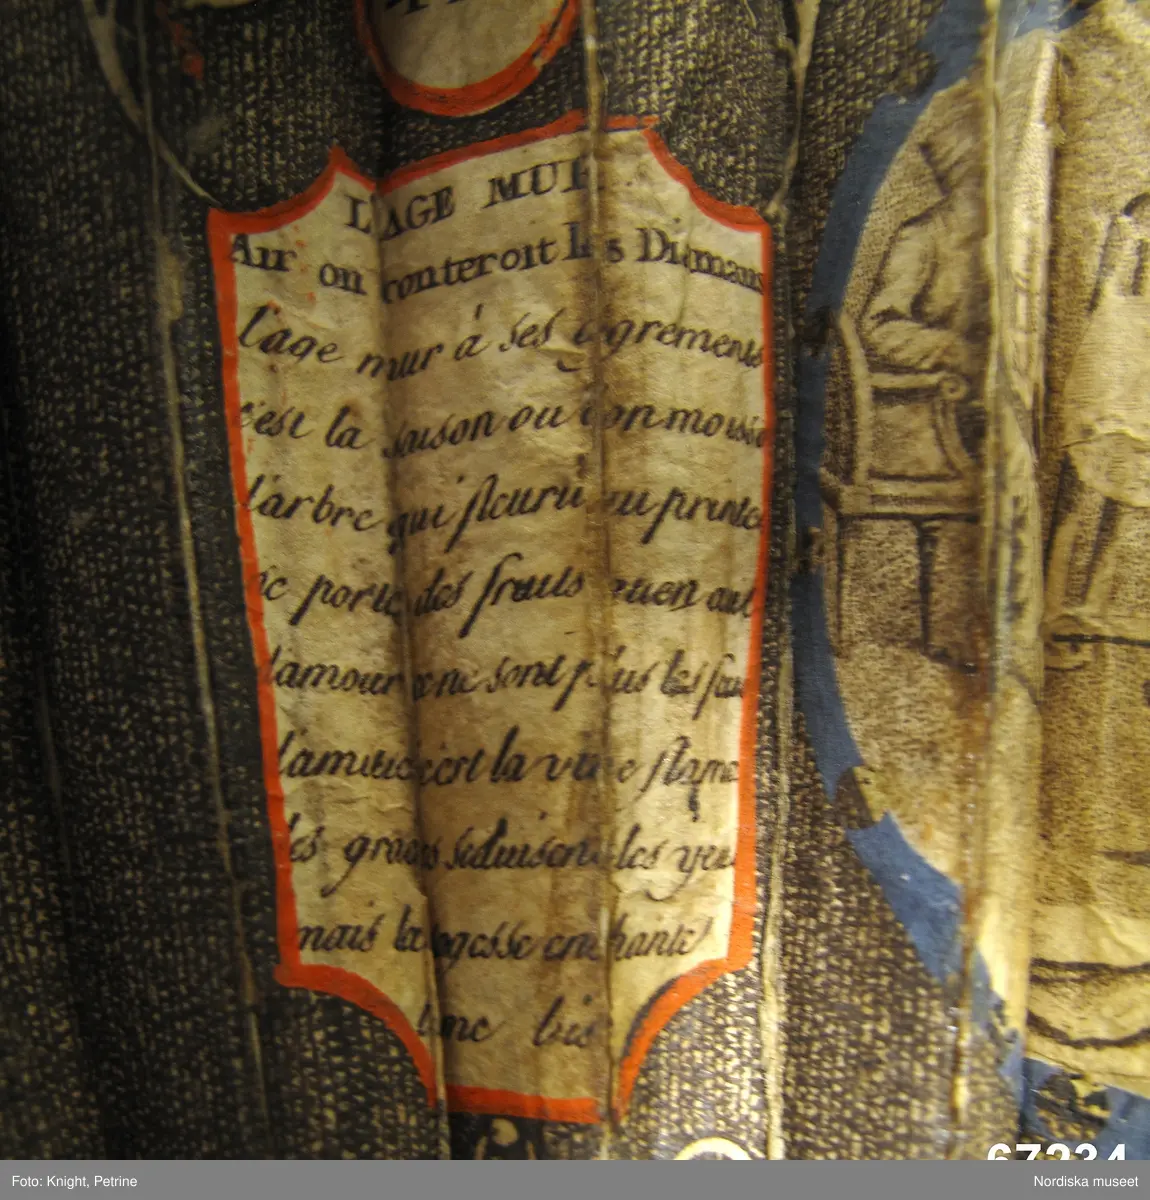 L'AGE MUR
Air on conteroit Les Diamans
l'age mur à ses agrements
c'est la saison ou l'on moisso
l'arbre qui fleurit au printe
ne porte des fruits quen aut
l'amour ne sont plus les feux
l'amitié c'est la vive flame
les graces seduisent les yeux
mais la sagesse enchante
l'ame bis
67234
Foto: Knight, Petrine
Nordiska museet